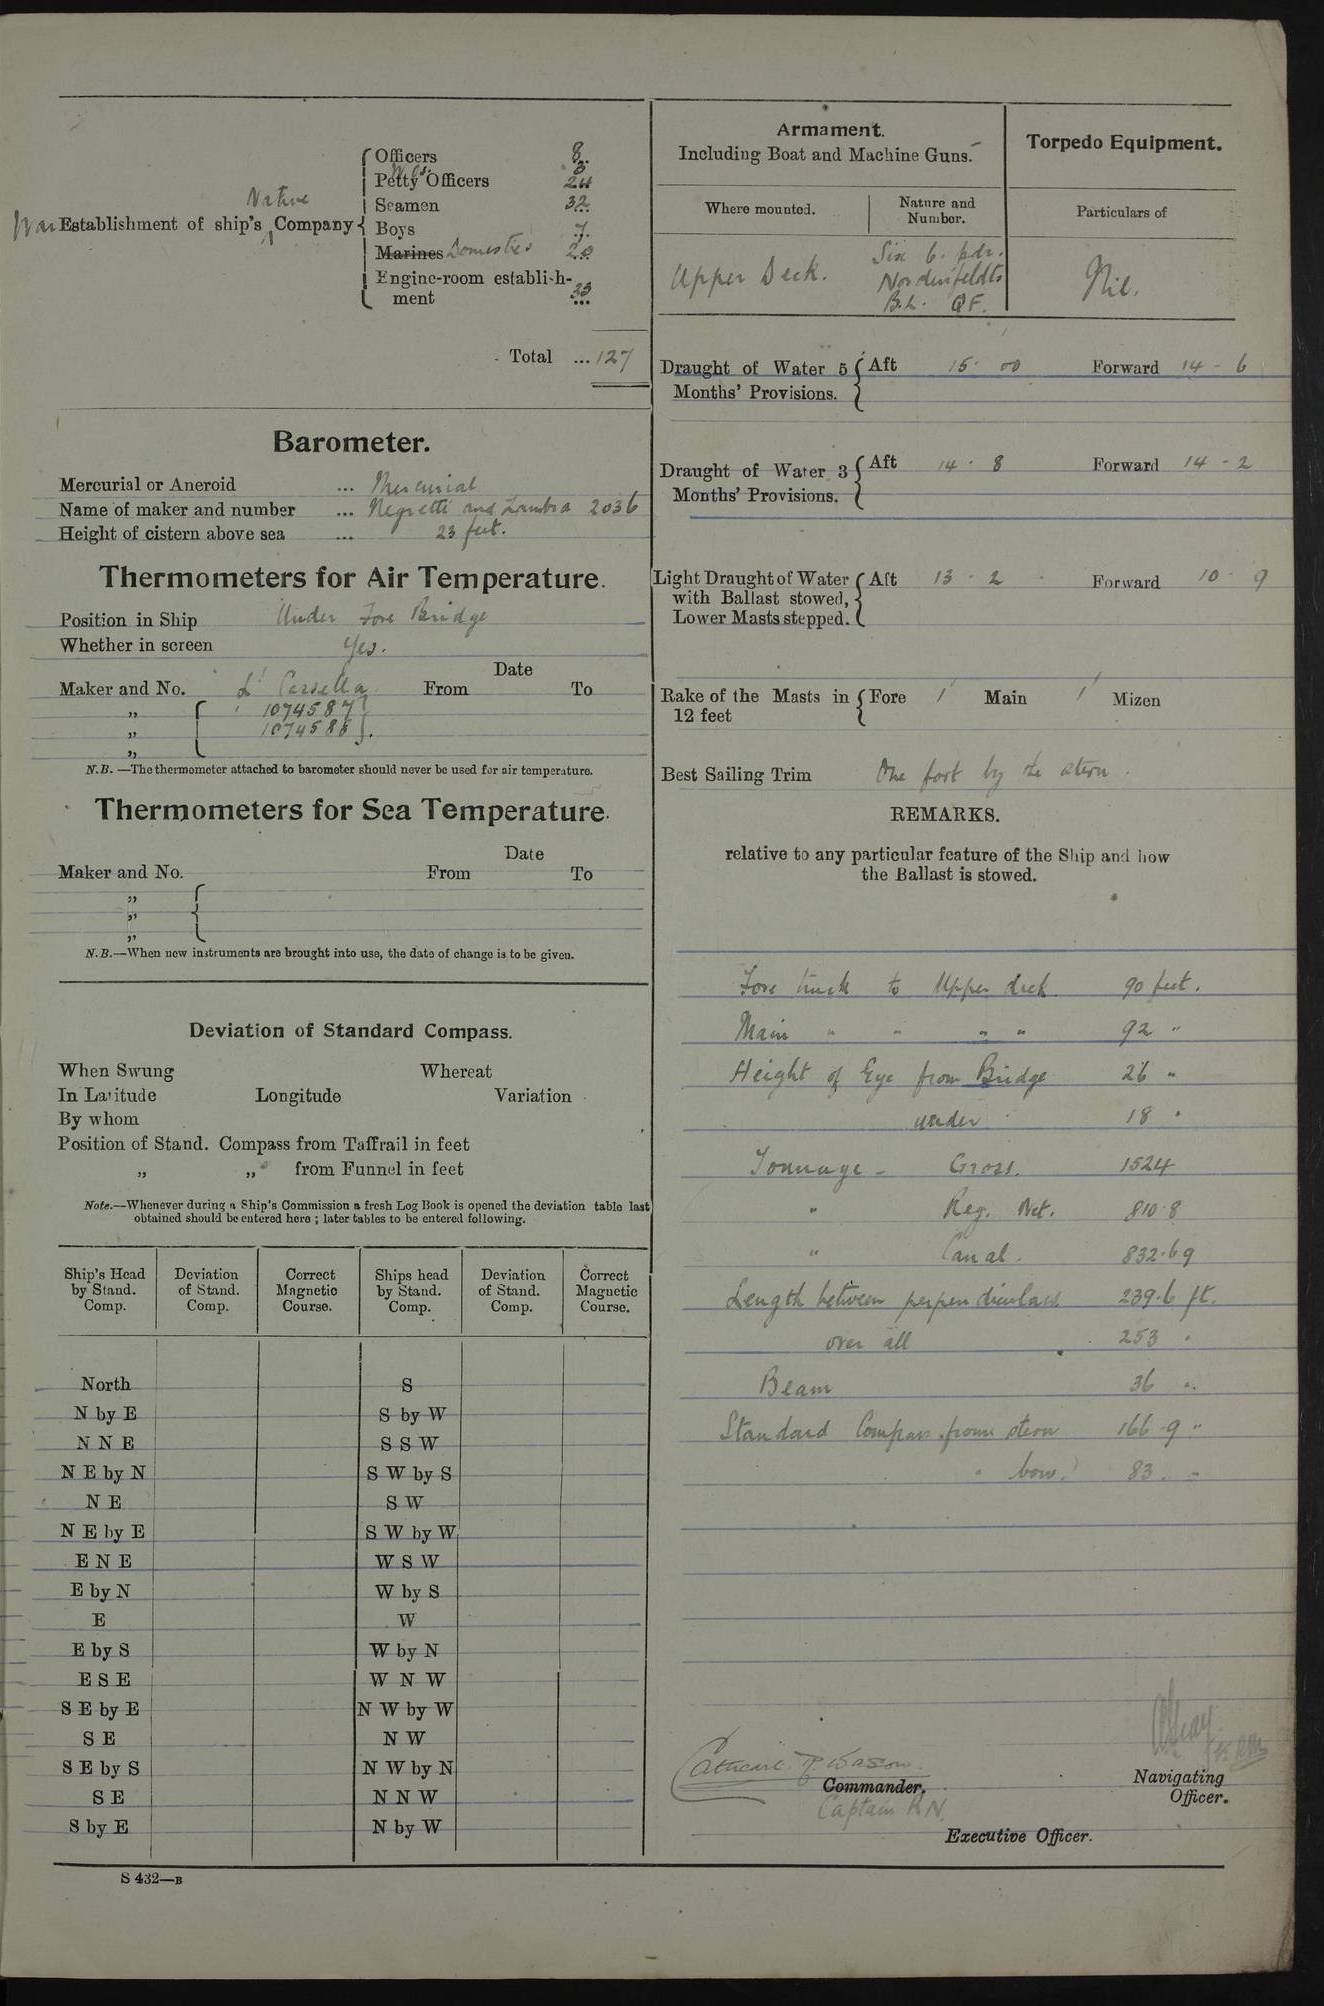 Officers 8
W.Os. 3
Petty Officers 24
Native
Seamen 32
War Establishment of ship's Company
Boys 7
Marines Domestics 20
Engine-room establish-
ment 33
Total ... 127
Barometer.
Mercurial or Aneroid ... Mercurial
Name of maker and number ... Negretti and Zambra 2036
Height of cistern above sea ... 23 feet.
Thermometers for Air Temperature.
Position in Ship Under Fore Bridge
Whether in screen Yes.
Date
Maker and No. Cassella From To
„ 1074587
„ 1074585
„
N.B. —The thermometer attached to barometer should never be used for air temperature.
Thermometers for Sea Temperature.
Date
Maker and No. From To
„
„
„
N.B.—When new instruments are brought into use, the date of change is to be given.
Deviation of Standard Compass.
When Swung Whereat
In Latitude Longitude Variation
By whom
Position of Stand. Compass from Taffrail in feet
„ „ from Funnel in feet
Note.—Whenever during a Ship's Commission a fresh Log Book is opened the deviation table last
obtained should be entered here ; later tables to be entered following.
Ship's Head Deviation Correct Ships head Deviation Correct
by Stand. of Stand. Magnetic by Stand. of Stand. Magnetic
Comp. Comp. Course. Comp. Comp. Course.
North S
N by E S by W
N N E S S W
N E by N S W by S
N E S W
N E by E S W by W
E N E W S W
E by N W by S
E W
E by S W by N
E S E W N W
S E by E N W by W
S E N W
S E by S N W by N
S E N N W
S by E N by W
S 432—B
Armament.
Including Boat and Machine Guns.
Torpedo Equipment.
Where mounted.
Nature and
Number.
Particulars of
Upper Deck.
Six 6. pdr.
Nordenfeldts
B.L. QF.
Nil.
Draught of Water 5 Aft 15 . 00 Forward 14 - 6
Months' Provisions.
Draught of Water 3 Aft 14 . 8 Forward 14 - 2
Months' Provisions.
Light Draught of Water Aft 13 - 2 Forward 10 - 9
with Ballast stowed,
Lower Masts stepped.
Rake of the Masts in Fore 1' Main 1' Mizen
12 feet
Best Sailing Trim One foot by the stern.
REMARKS.
relative to any particular feature of the Ship and how
the Ballast is stowed.
Fore truck to Upper deck 90 feet.
Main " " " " 92 "
Height of Eye from Bridge 26 "
under 18 "
Tonnage - Gross. 1524
" Reg. Net. 810.8
" Canal. 832.69
Length between perpendiculars 239.6 ft.
over all 253 "
Beam 36 "
Standard Compass from stern 166.9 "
" bow. 83. "
Commander.
Captain RN
Navigating
Officer.
Executive Officer.